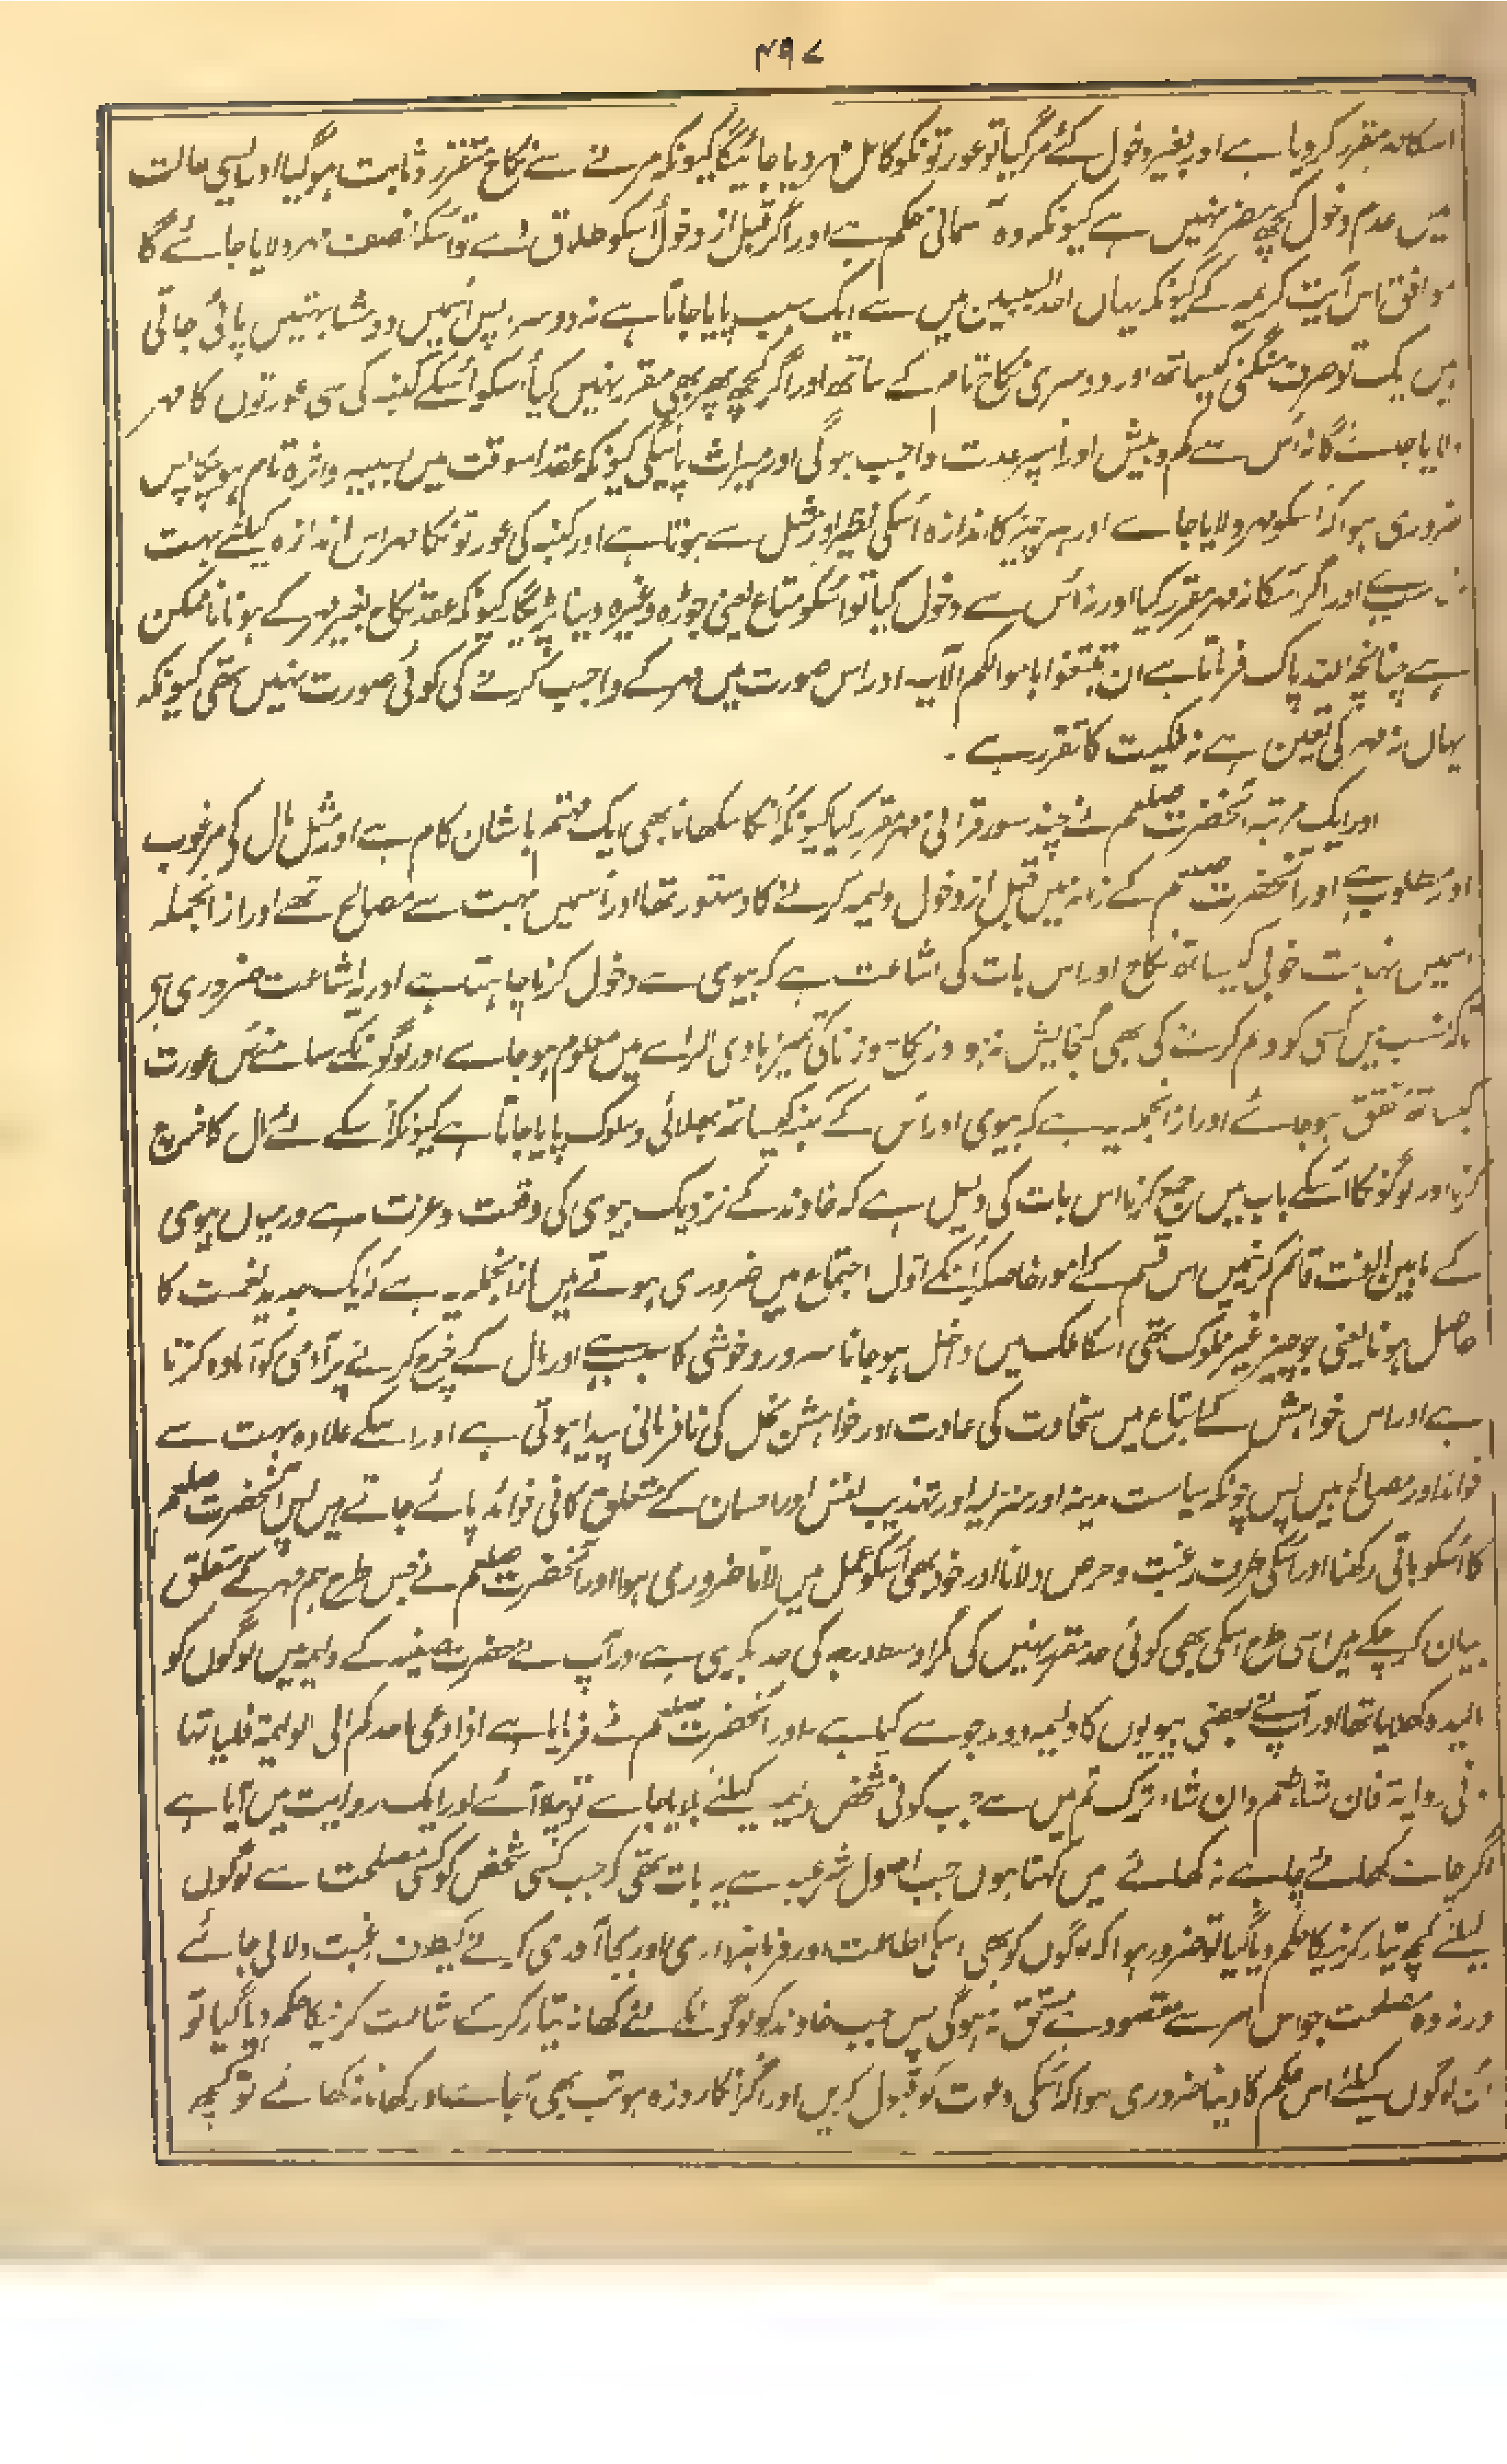 ۴۹۷
اسکا مہر مقرر کر دیا ہے اور بغیر دخول کئے مر گیا تو عورتونکو کامل مہر دیا جائیگا کیونکہ مرنے سے نکاح متقرر و ثابت ہو گیا اور ایسی حالت
میں عدم دخول کچھ مضر نہیں ہے کیونکہ وہ آسمانی حکم ہے اور اگر قبل از دخول اُسکو طلاق دے تو اُسکا نصف مہر دلایا جائے گا
موافق اس آیت کریمہ کے کیونکہ یہاں احد السببین میں سے ایک سبب پایا جاتا ہے نہ دوسرا پس اُسمیں دو مشابہتیں پائی جاتی
ہیں یک تو صرف منگنی کیساتھ اور دوسری نکاح تام کے ساتھ اور اگر کچھ پھر بھی مقرر نہیں کیا اُسکو اُسکے کنبہ کی سی عورتوں کا مہر
دلایا جائے گا نہ اُس سے کم و بیش اور اُسپر عدت واجب ہوگی اور میراث پائیگی کیونکہ عقد اسوقت میں بسببہ واثرہ تام ہو چکا پس
ضروری ہوا کہ اُسکو مہر دلایا جاے اور ہر چیز کا اندازہ اُسکی نظیر اور مثل سے ہوتا ہے اور کنبہ کی عورتونکا مہر اس اندازہ کیلئے بہت
مناسب ہے اور اگر اُسکا نہ مہر مقرر کیا اور نہ اُس سے دخول کیا تو اُسکو متاع یعنی جوڑہ وغیرہ دینا پڑیگا کیونکہ عقد نکاح بغیر مہر کے ہونا ناممکن
ہے چنانچہ اللہ پاک فرماتا ہے ان تبتغوا باموالکم الآیہ اور اس صورت میں مہر کے واجب کرنے کی کوئی صورت نہیں تھی کیونکہ
یہاں نہ مہر کی تعین ہے نہ ملکیت کا تقرر ہے ۔
اور ایک مرتبہ آنحضرت صلعم نے چند سور قرآنی مہر مقرر کیا کیونکہ اُنکا سکھانا بھی ایک مہتم بالشان کام ہے اور مثل مال کی مرغوب
اور مطلوب ہے اور آنحضرت صلعم کے زمانہ میں قبل از دخول ولیمہ کرنے کا دستور تھا اور اُسمیں بہت سے مصالح تھے اور ازانجملہ
اسمیں نہایت خوبی کیساتھ نکاح اور اس بات کی اشاعت ہے کہ بیوی سے دخول کرنا چاہتا ہے اور یہ اشاعت ضروری ہے
تاکہ نسب میں کسی کو وہم کرنے کی بھی گنجایش نہ ہو اور نکاح و زنا کی تمیز بادی الراے میں معلوم ہو جاے اور لوگونکے سامنے اُس عورت
کیساتھ تحقق ہو جائے اور ازانجملہ یہ ہے کہ بیوی اور اُس کے کنبہ کیساتھ بھلائی و سلوک پایا جاتا ہے کیونکہ اُسکے لئے مال کا خرچ
کرنا اور لوگونکا اُسکے باب میں جمع کرنا اس بات کی دلیل ہے کہ خاوند کے نزدیک بیوی کی وقعت و عزت ہے اور میاں بیوی
کے مابین الفت قائم کرنیمیں اس قسم کے امور خاصکر اُنکے اوّل اجتماع میں ضروری ہوتے ہیں ازانجملہ یہ ہے کہ ایک جدید نعمت کا
حاصل ہونا یعنی جو چیز غیر مملوک تھی اسکا ملک میں داخل ہو جانا سرور و خوشی کا سبب ہے اور مال کے خرچ کرنے پر آدمی کو آمادہ کرتا
ہے اور اس خواہش کے اتباع میں سخاوت کی عادت اور خواہش بخل کی نافرمانی پیدا ہوتی ہے اور اسکے علاوہ بہت سے
فوائد اور مصالح ہیں پس چونکہ سیاست مدینہ اور منزلیہ اور تہذیب نفس اور احسان کے متعلق کافی فوائد پائے جاتے ہیں پس آنحضرت صلعم
کا اُسکو باقی رکھنا اور اُسکی طرف رغبت و حرص دلانا اور خود بھی اُسکو عمل میں لانا ضروری ہوا اور آنحضرت صلعم نے جس طرح ہم مہر کے متعلق
بیان کر چکے ہیں اسی طرح اسکی بھی کوئی حد مقرر نہیں کی مگر اوسط درجہ کی حد بکری ہے اور آپ نے حضرت صفیہ کے ولیمہ میں لوگوں کو
مالیدہ کھلایا تھا اور آپ نے بعضی بیویوں کا ولیمہ دو مد جو سے کیا ہے ۔ اور آنحضرت صلعم نے فرمایا ہے اذا دعی احدکم الی الولیمۃ فلیاتہا
وفی روایۃ فان شاء طعم وان شاء ترک تم میں سے جب کوئی شخص ولیمہ کیلئے بلایا جاے تو چلا آئے اور ایک روایت میں آیا ہے
اگر چاہے کھالے چاہے نہ کھائے میں کہتا ہوں جب اصول شرعیہ سے یہ بات تھی کہ جب کسی شخص کو کسی مصلحت سے لوگوں
کیلئے کچھ تیار کرنیکا حکم دیا گیا تو ضرور ہوا کہ لوگوں کو بھی اسکی اطاعت اور فرمانبرداری اور بجا آوری کرنے کیطرف رغبت دلائی جائے
ورنہ وہ مصلحت جو اس امر سے مقصود ہے متحقق نہ ہوگی پس جب خاوند کو لوگونکے لئے کھانا تیار کرکے اشاعت کرنیکا حکم دیا گیا تو
اُن لوگوں کیلئے اس حکم کا دینا ضروری ہوا کہ اُسکی دعوت کو قبول کریں اور اگر اُنکا روزہ ہو تب بھی آجائے اور کھانا نہ کھانے تو کچھ